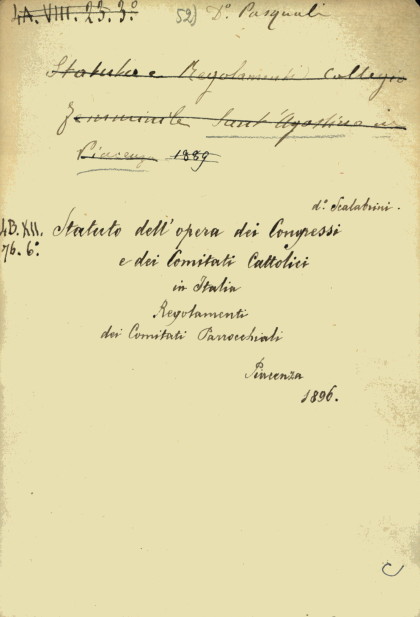 4A. VIII. 23. 3º 52) Dº. Pasquali
Statuto e Regolamenti Collegio
Femminile Sant'Agostino in
Piacenza 1889
dº. Scalabrini.
4B. XII. Statuto dell'opera dei Congressi
76. 6º. e dei Comitati Cattolici
in Italia
Regolamenti
dei Comitati Parrocchiali
Piacenza
1896.
C